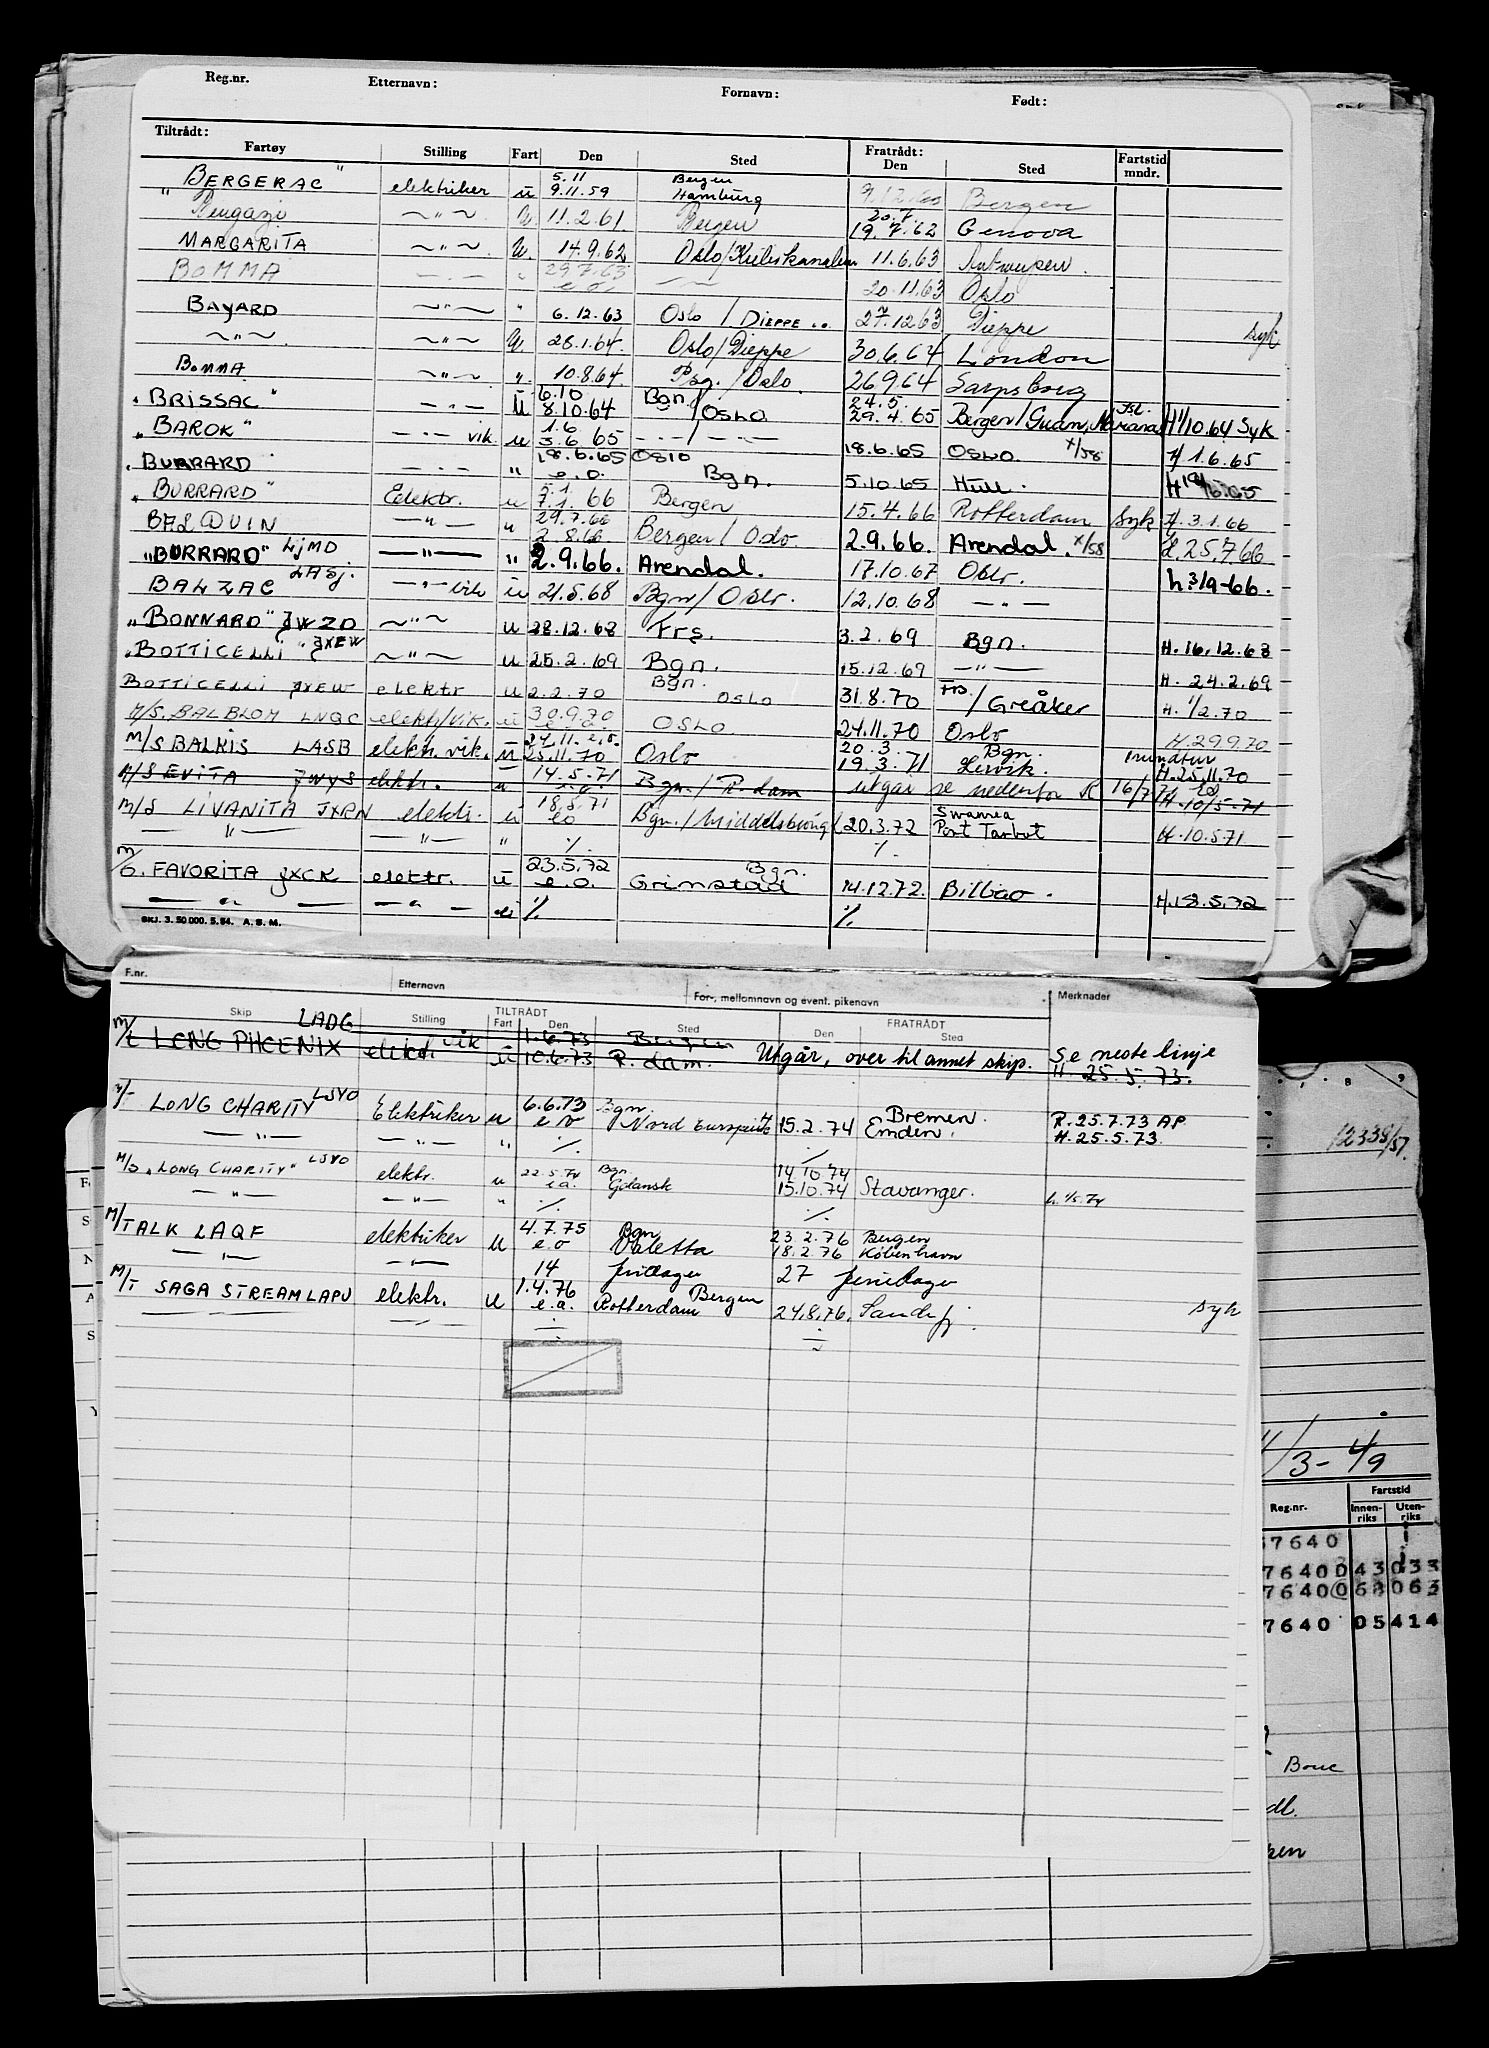 Reg.nr. Etternavn: Fornavn: Født:
Tiltrådt: Fratrådt: Fartstid
Fartøy Stilling Fart Den Sted Den Sted mndr.
5.11 Bergen
"BERGERAC" elektriker u 9.11.59 Hamburg 9.12.60 Bergen
20.7.
Bengazi —"— u. 11.2.61 Bergen 19.7.62 Genova
MARGARITA —"— u. 14.9.62 Oslo/Kielerkanalen 11.6.63 Antwerpen.
BOMMA —"— " 29.7.63 e.o. —"— 20.11.63 Oslo
BAYARD —"— " 6.12.63 Oslo / DIEPPE 27.12.63 Dieppe
—"— —"— u. 28.1.64. Oslo/Dieppe 30.6.64 London syk
BOMMA —"— ". 10.8.64. Psg. / Oslo. 26.9.64 Sarpsborg
6.10 Bgn. 24.5.
"BRISSAC" —"— u 8.10.64 /OSLO 29.4.65 Bergen/Guam, Mariana Isl. H 1/10.64 Syk
1.6
"BAROK" —"— vik. u 3.6.65 —"—/—"— 18.6.65 OSLO. x/58 H 1.6.65
18.6.65 OSLO
"BURRARD" —"— " e.o. Bgn. 5.10.65 Hull.
5.1.
"BURRARD" Elektr. u 7.1.66 Bergen 15.4.66 Rotterdam syk H. 3.1.66
29.7.66
BALDUIN —"— " 2.8.66 Bergen / Oslo 2.9.66. Arendal. x/58 H.25.7.66
"BURRARD" LJMD —"— " 2.9.66. Arendal. 17.10.67 Oslo. h. 31/9-66.
BALZAC LASJ. —"— vik u 21.5.68 Bgn/Oslo. 12.10.68 —"—
"BONNARD" JWZD —"— u 28.12.68 Frs. 3.2.69 Bgn. H.16.12.68
"BOTTICELLI" JXEW —"— u 25.2.69 Bgn. 15.12.69 —"— H. 24.2.69
BOTTICELLI JXEW elektr u 2.2.70 Bgn. OSLO 31.8.70 Frs. /Greåker H. 1/2.70
M/S. BALBLOM LNQC elektr/vik. u 30.9.70 e.o. OSLO 24.11.70 Oslo H.29.9.70
24.11. e.o. 20.3. Bgn. rundtur
M/S BALKIS LASB elektr. vik. u 25.11.70 Oslo 19.3.71 Lervik. H.25.11.70
M/S EVITA JWYS elektr. u 14.5.71 e.o. Bgn. / R.dam utgår se nedenfor H. 10/5-71
M/S LIVANITA JXRN elektr. u 18.5.71 eo Bgn. / Middelsbrough 20.3.72 Swansea Port Tarbot H.10.5.71
—"— —"— " %. %.
M/S. FAVORITA JXCK elektr. u 23.5.72 e.o. Bgn. Grimstad 14.12.72. Bilbao. H.18.5.72
—"— —"— %. %.
SKJ. 3. 50 000. 5.64. A. S. M.
F.nr. Etternavn For-, mellomnavn og event. pikenavn Merknader
Skip Stilling TILTRÅDT Fart Den Sted FRATRÅDT Den Sted
M/T LONG PHOENIX LADG elektr. vik u 1.6.73 10.6.73 Bergen R.dam. Utgår, over til annet skip. Se neste linje
H. 25.5.73.
LONG CHARITY LSYO Elektriker u 6.6.73 eo Bgn. Nord Europeisk 15.2.74 Bremen. Emden. R.25.7.73 AP
H.25.5.73.
—"— —"— " %. %.
M/S "LONG CHARITY" LSYO elektr. u 22.5.74 e.o. Bgn. Gdansk 14.10.74 15.10.74 Stavanger.
—"— —"— " %. %.
M/T ALK LAQF elektriker u 4.7.75 e.o Bgn Valetta 23.2.76 Bergen
18.2.76 København
—"— —"— 14 feriedager 27 feriedager
M/T SAGA STREAM LAPU elektr. u 1.4.76 e.o. Bergen Rotterdam 24.8.76. Sandefj. syk
12338/57.
1/3 - 4/9
Reg.nr. Fartstid
Innenriks Utenriks
57640
76400 43 033
76400 68 063
7640 05414
Bouc
dl.
ken